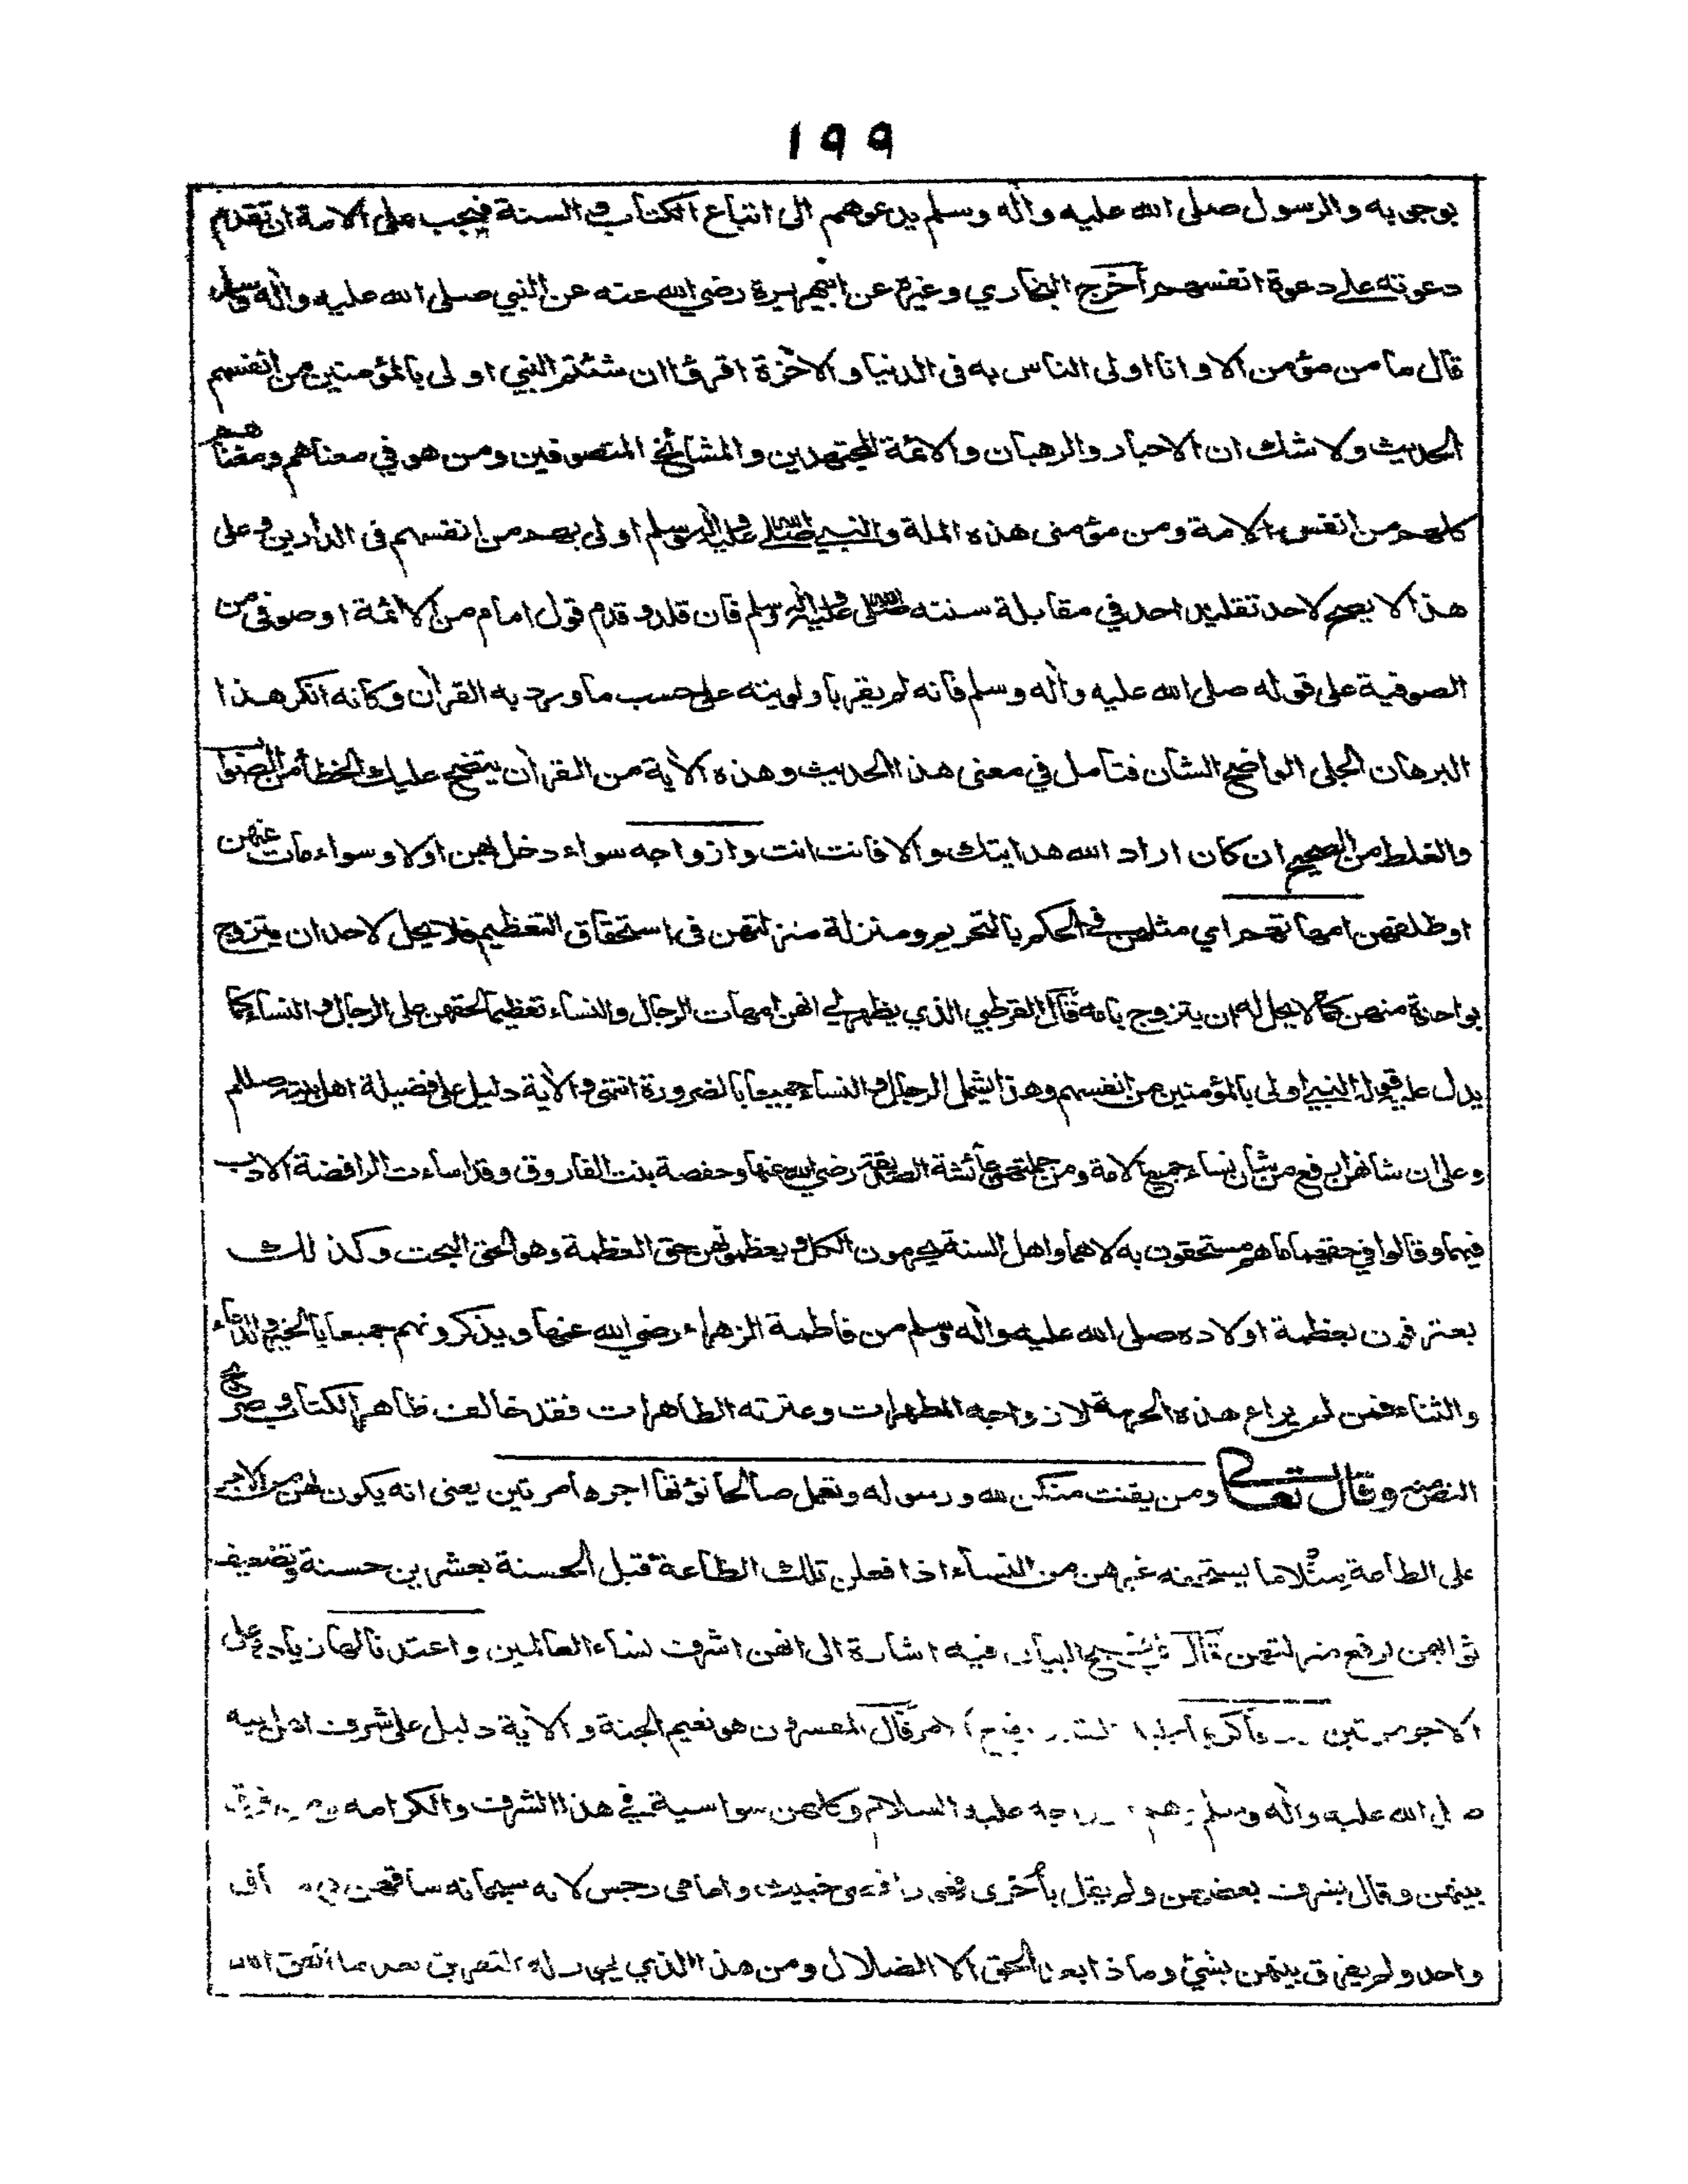 ١٩٩
يوحى به والرسول صلى الله عليه واله وسلم يدعوهم الى اتباع الكتاب و السنة فيجب على الامة ان تقدم
دعوته على دعوة انفسهم اخرج البخاري وغيره عن ابي هريرة رضي الله عنه عن النبي صلى الله عليه واله وسلم
قال ما من مؤمن الا و انا اولى الناس به فى الدنيا و الاخرة اقرؤا ان شئتم النبي اولى بالمؤمنين من انفسهم
الحديث ولا شك ان الاحبار والرهبان والائمة المجتهدين والمشائخ المتصوفين ومن هو في معناهم ومعنا هم
كلهم من انفس الامة ومن مؤمنى هذه الملة والنبي صلى الله عليه واله وسلم اولى بهم من انفسهم فى الدارين و على
هذا لا يصح لاحد تقليد احد في مقابلة سنته صلى الله عليه واله وسلم فان قلد و قدم قول امام من الائمة او صوفى من
الصوفية على قوله صلى الله عليه واله وسلم فانه لم يقر باولويته على حسب ما ورد به القران وكانه انكر هذا
البرهان الجلى الواضح الشان فتامل في معنى هذا الحديث وهذه الاية من القران يتضح عليك الخطأ من الصواب
والغلط من الصحيح ان كان اراد الله هدايتك والا فانت انت وازواجه سواء دخل بهن اولا وسواء مات عنهن
او طلقهن امهاتهم اي مثلهن في الحكم بالتحريم ومنزلة منزلتهن فى استحقاق التعظيم فلا يحل لاحد ان يتزوج
بواحدة منهن كما لا يحل له ان يتزوج بامه قال القرطبي الذي يظهر لي انهن امهات الرجال والنساء تعظيما لحقهن على الرجال و النساء كما
يدل عليه قوله النبي اولى بالمؤمنين من انفسهم وهذا يشمل الرجال و النساء جميعا بالضرورة انتهى و الاية دليل على فضيلة اهل بيته صللم
وعلى ان شانهن ارفع من شان نساء جميع الامة ومن جملتهن عائشة الصديقة رضي الله عنها وحفصة بنت الفاروق وقد اساءت الرافضة الادب
فيهما وقالوا في حقهما ما هم مستحقون به لا هما واهل السنة يحرمون الكل و يعظمونهن حق العظمة وهو الحق البحت وكذلك
يعترفون بعظمة اولاده صلى الله عليه واله وسلم من فاطمة الزهراء رضي الله عنها ويذكرونهم جميعا بالخير والدعاء
والثناء فمن لم يراع هذه الحرمة لازواجه المطهرات وعترته الطاهرات فقد خالف ظاهر الكتاب و صريح
النص منه وقال تعالى ومن يقنت منكن لله ورسوله وتعمل صالحا نؤتها اجرها مرتين يعنى انه يكون لهن من الاجر
على الطاعة مثلا ما يستحقه غيرهن من النساء اذا فعلن تلك الطاعة قبل الحسنة بعشرين حسنة وتضعيف
ثوابهن لرفع منزلتهن قال في فتح البيان فيه اشارة الى انهن اشرف نساء العالمين واعتدنا لها زيادة على
الاجر مرتين قال المفسرون هو نعيم الجنة والاية دليل على شرف اهل بيته
صلى الله عليه واله وسلم عليه السلام وكلهن سواسية في هذا الشرف والكرامة ومن فرق
بينهن وقال بشرف بعضهن ولم يقل بأخرى فهو خبيث واما مى رجس لانه سبحانه ساقهن
واحد ولم يفرق بينهن بشئ وماذا بعد الحق الا الضلال ومن هذا الذي يجوز له التفريق بعد ما اتفق الله